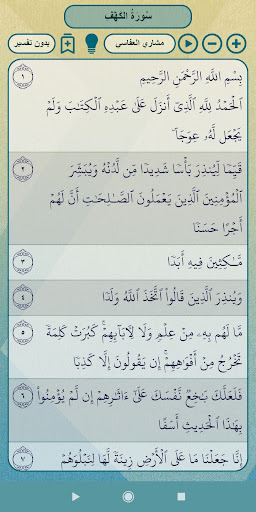 سُورَةُ الكَهْفِ
بدون تفسير
مشاري العفاسي
١
بِسْمِ اللَّهِ الرَّحْمَٰنِ الرَّحِيمِ
ٱلْحَمْدُ لِلَّهِ ٱلَّذِىٓ أَنزَلَ عَلَىٰ عَبْدِهِ ٱلْكِتَٰبَ وَلَمْ
يَجْعَل لَّهُۥ عِوَجَاۜ
٢
قَيِّمًا لِّيُنذِرَ بَأْسًا شَدِيدًا مِّن لَّدُنْهُ وَيُبَشِّرَ
ٱلْمُؤْمِنِينَ ٱلَّذِينَ يَعْمَلُونَ ٱلصَّٰلِحَٰتِ أَنَّ لَهُمْ
أَجْرًا حَسَنًا
٣
مَّٰكِثِينَ فِيهِ أَبَدًا
٤
وَيُنذِرَ ٱلَّذِينَ قَالُوا۟ ٱتَّخَذَ ٱللَّهُ وَلَدًا
٥
مَّا لَهُم بِهِۦ مِنْ عِلْمٍ وَلَا لِءَابَآئِهِمْ ۚ كَبُرَتْ كَلِمَةً
تَخْرُجُ مِنْ أَفْوَٰهِهِمْ ۚ إِن يَقُولُونَ إِلَّا كَذِبًا
٦
فَلَعَلَّكَ بَٰخِعٌ نَّفْسَكَ عَلَىٰٓ ءَاثَٰرِهِمْ إِن لَّمْ يُؤْمِنُوا۟
بِهَٰذَا ٱلْحَدِيثِ أَسَفًا
٧
إِنَّا جَعَلْنَا مَا عَلَى ٱلْأَرْضِ زِينَةً لَّهَا لِنَبْلُوَهُمْ